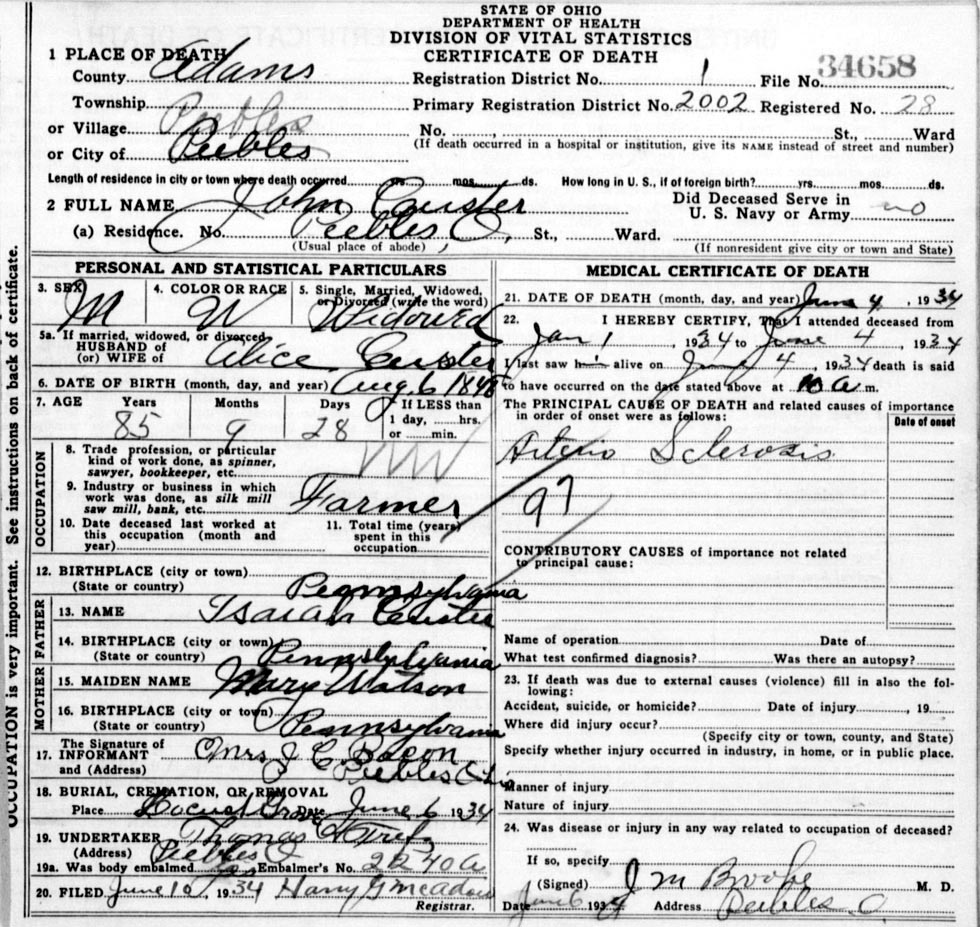 STATE OF OHIO
DEPARTMENT OF HEALTH
DIVISION OF VITAL STATISTICS
CERTIFICATE OF DEATH
1 PLACE OF DEATH
County Adams Registration District No. 1 File No. 34658
Township Peebles Primary Registration District No. 2002 Registered No. 28
or Village No. , St., Ward
or City of Peebles (If death occurred in a hospital or institution, give its NAME instead of street and number)
Length of residence in city or town where death occurred yrs. mos. ds. How long in U. S., if of foreign birth? yrs. mos. ds.
2 FULL NAME John Custer Did Deceased Serve in U. S. Navy or Army no
(a) Residence. No. Peebles O, St., Ward.
(Usual place of abode) (If nonresident give city or town and State)
OCCUPATION is very important. See instructions on back of certificate.
PERSONAL AND STATISTICAL PARTICULARS
3. SEX M 4. COLOR OR RACE W 5. Single, Married, Widowed, or Divorced (write the word) Widowed
5a. If married, widowed, or divorced
HUSBAND of
(or) WIFE of Alice Custer
6. DATE OF BIRTH (month, day, and year) Aug. 6 1848
7. AGE Years Months Days If LESS than
85 9 28 1 day, hrs.
or min.
OCCUPATION
8. Trade profession, or particular
kind of work done, as spinner,
sawyer, bookkeeper, etc.
9. Industry or business in which
work was done, as silk mill
saw mill, bank, etc. Farmer
10. Date deceased last worked at
this occupation (month and
year)
11. Total time (years)
spent in this
occupation
12. BIRTHPLACE (city or town)
(State or country) Pennsylvania
FATHER
13. NAME Isaiah Custer
14. BIRTHPLACE (city or town)
(State or country) Pennsylvania
MOTHER
15. MAIDEN NAME Mary Watson
16. BIRTHPLACE (city or town)
(State or country) Pennsylvania
17. The Signature of
INFORMANT Mrs J C. Bacon
and (Address) Peebles Ohio
18. BURIAL, CREMATION, OR REMOVAL
Place Locust Grove Date June 6 1934
19. UNDERTAKER Thomas
(Address) Peebles O
19a. Was body embalmed yes Embalmer's No. 2240 a
20. FILED June 10, 1934 Harry G Meadow
Registrar.
MEDICAL CERTIFICATE OF DEATH
21. DATE OF DEATH (month, day, and year) June 4, 1934
22. I HEREBY CERTIFY, That I attended deceased from
Jan 1, 1934 to June 4, 1934
I last saw him alive on June 4, 1934 death is said
to have occurred on the date stated above at 10 a. m.
The PRINCIPAL CAUSE OF DEATH and related causes of importance
in order of onset were as follows:
Date of onset
Arterio Sclerosis
97
CONTRIBUTORY CAUSES of importance not related
to principal cause:
Name of operation Date of
What test confirmed diagnosis? Was there an autopsy?
23. If death was due to external causes (violence) fill in also the fol-
lowing:
Accident, suicide, or homicide? Date of injury , 19
Where did injury occur?
(Specify city or town, county, and State)
Specify whether injury occurred in industry, in home, or in public place.
Manner of injury
Nature of injury
24. Was disease or injury in any way related to occupation of deceased?
If so, specify
(Signed) J M M. D.
Date June 6 1934 Address Peebles O.